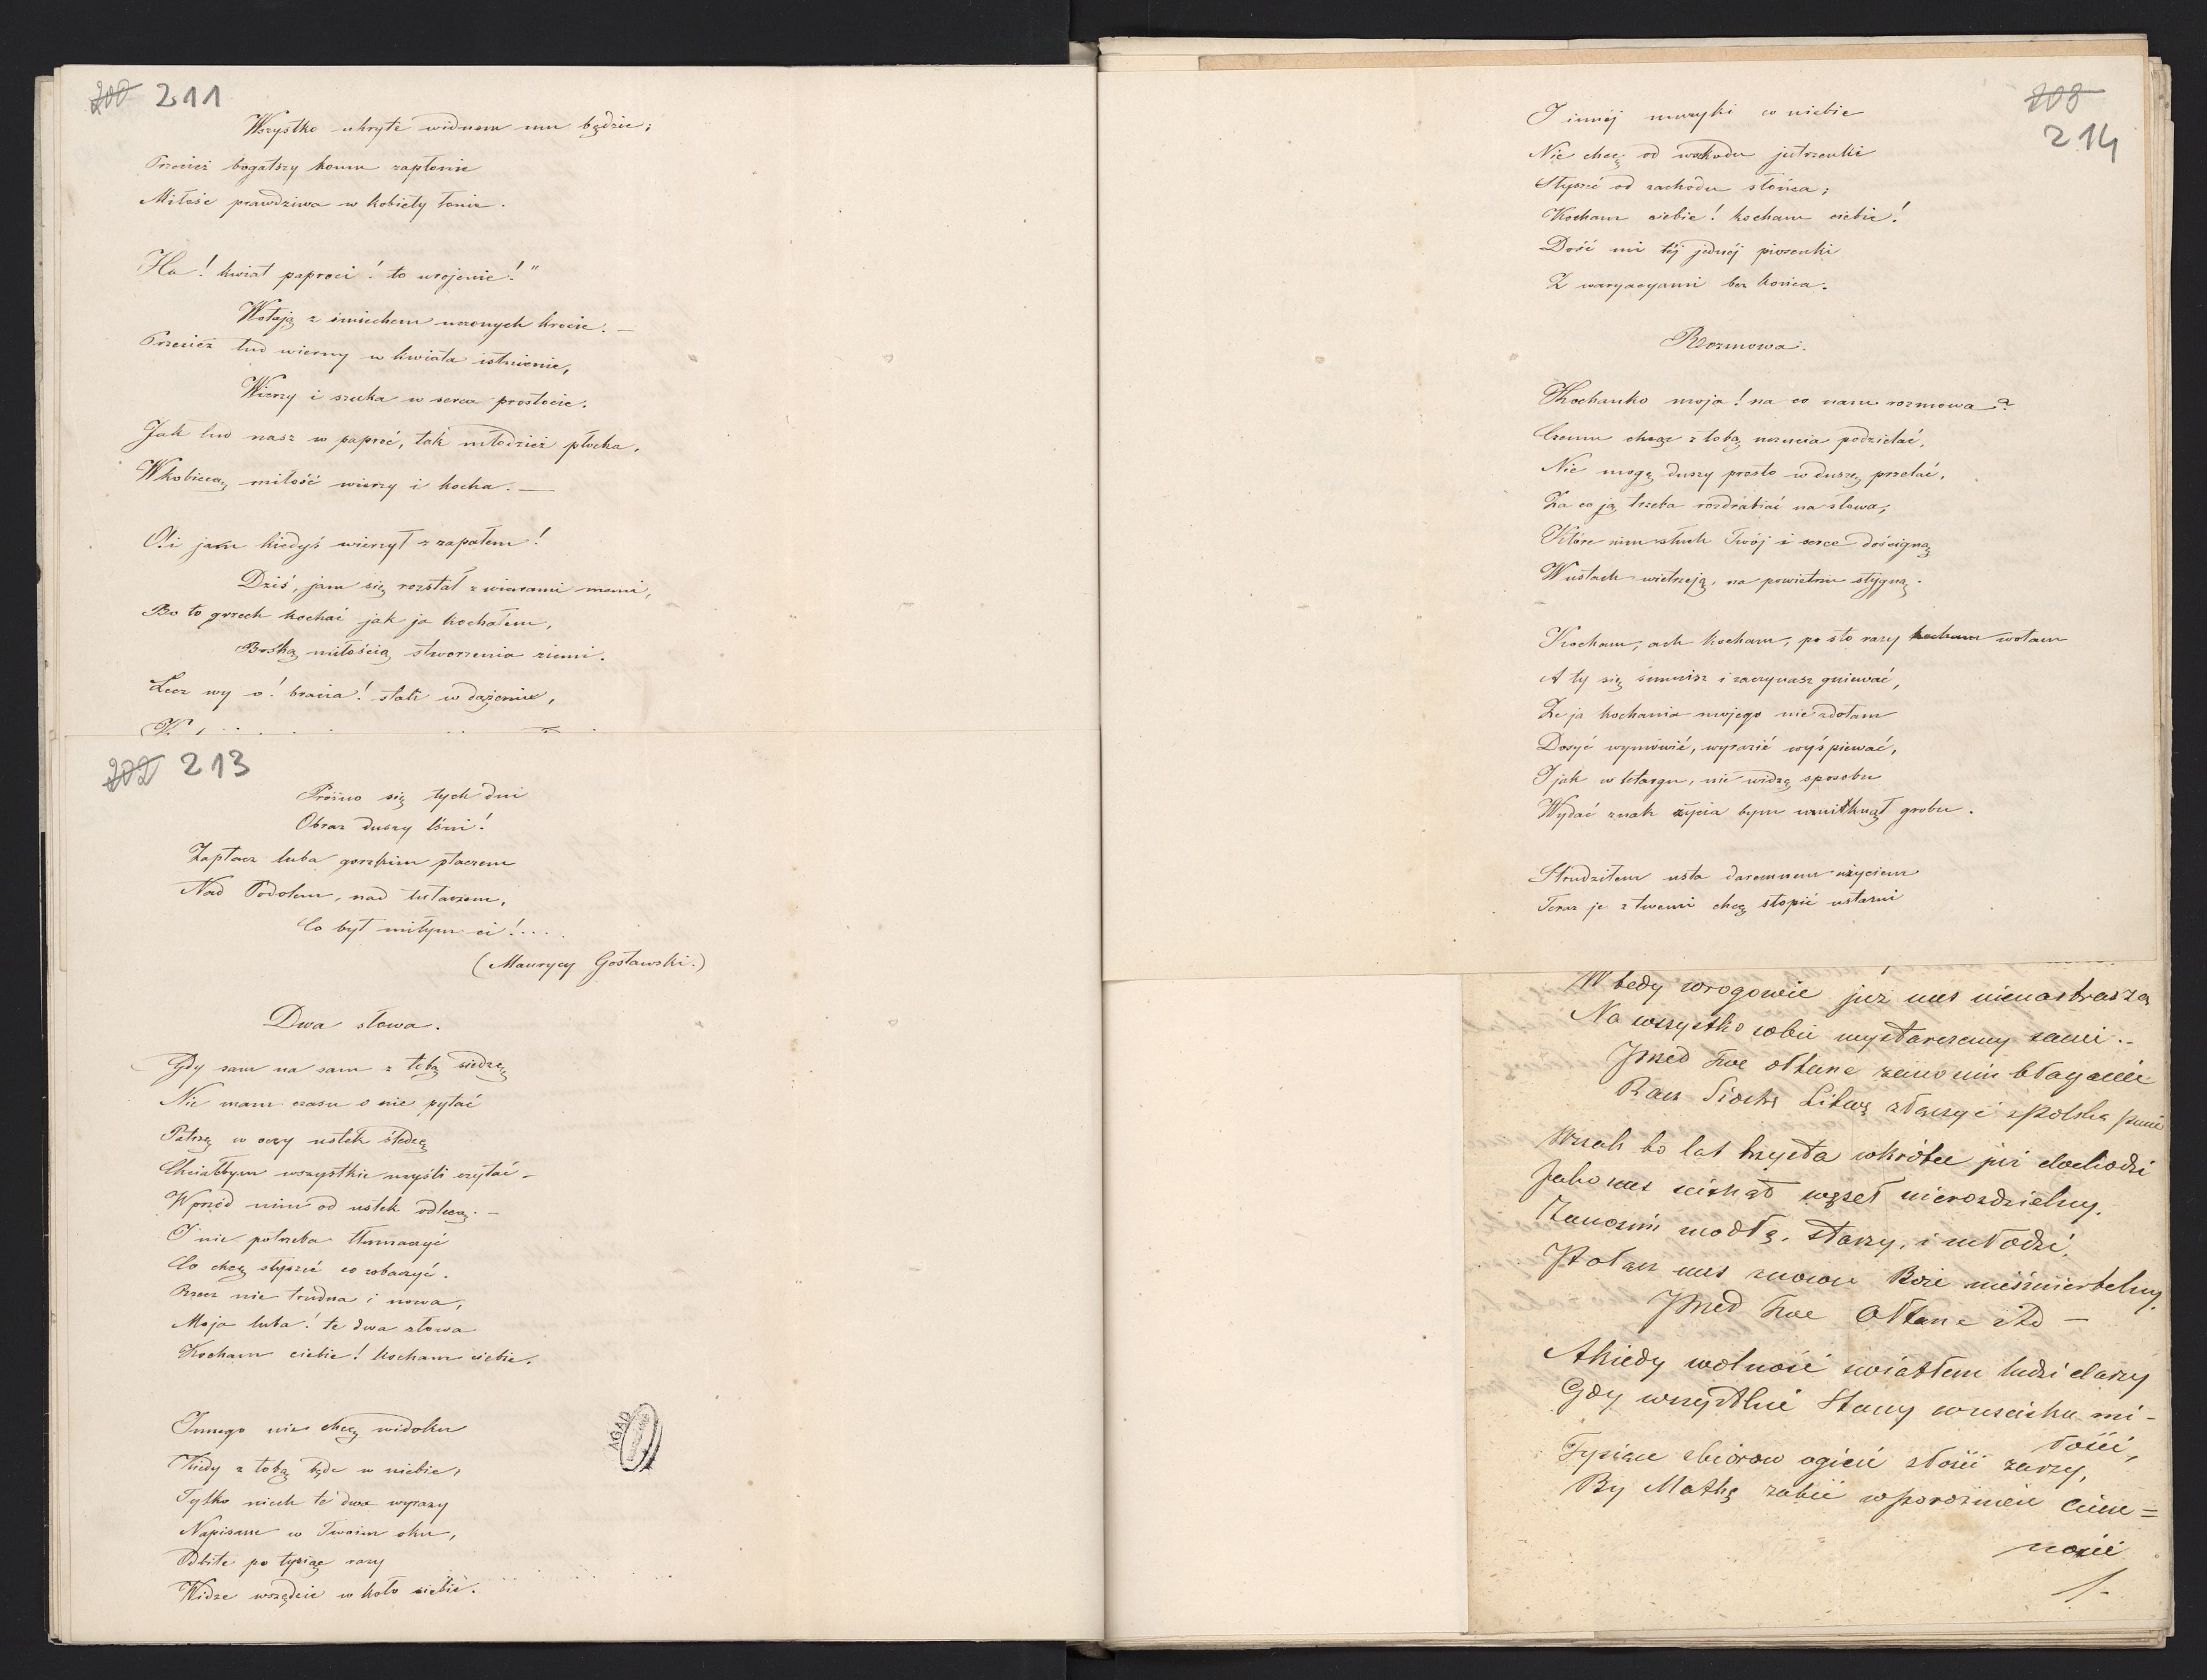 200 211
Wszystko ukryte widnem mu będzie;
Przecież bogatszy komu zapłonie
Miłość prawdziwa w kobiety łonie.
Ha! kwiat paproci! to urojenie!"
Wołają z śmiechem uczonych krocie. —
Przecież lud wierny w kwiata istnienie,
Wierzy i szuka w serca prostocie.
Jak lud nasz w paproć, tak młodzież płocha,
W kobiecą miłość wierzy i kocha. —
O! i jam kiedyś wierzył z zapałem!
Dziś, jam się rozstał z wiarami memi,
Bo to grzech kochać jak ja kochałem,
Boską miłością stworzenia ziemi.
Lecz wy o! bracia! stali w dążeniu,
202 213
Próżno się tych dni
Obraz duszy lśni!
Zapłacz luba gorzkim płaczem
Nad Podolem, nad tułaczem,
Co był miłym ci!....
(Maurycy Gosławski.)
Dwa słowa.
Gdy sam na sam z tobą siedzę,
Nie mam czasu o nic pytać
Patrzę w oczy ustek śledzę
Chciałbym wszystkie myśli czytać —
Wprzód nim od ustek odlecą. —
I nie potrzeba tłumaczyć
Co chcę słyszeć co zobaczyć.
Rzecz nie trudna i nowa,
Moja luba! te dwa słowa
Kocham ciebie! kocham ciebie.
Innego nie chcę widoku
Kiedy z tobą będę w niebie,
Tylko niech te dwa wyrazy
Napisane w Twoim oku,
Odbite po tysiąc razy
Widzę wszędzie w koło siebie.
AGAD
208
214
I innej muzyki w niebie
Nie chcę od wschodu jutrzenki
Słyszeć od zachodu słońca;
Kocham ciebie! kocham ciebie!
Dość mi tej jednej piosenki
Z waryacyami bez końca.
Rozmowa.
Kochanko moja! na co nam rozmowa?
Czemu chcąc z tobą uczucia podzielać,
Nie mogę duszy prosto w duszę przelać,
Za co ją trzeba rozdrabiać na słowa,
Które nim słuch Twój i serce dościgną
W ustach wietrzeją, na powietrzu stygną.
Kocham, ach kocham, po sto razy kocham wołam
A ty się smucisz i zaczynasz gniewać,
Że ja kochania mojego nie zdołam
Dosyć wymówić, wyrazić wyśpiewać,
I jak w letargu, nie widzę sposobu
Wydać znak życia bym uniknął grobu.
Strudziłem usta daremnem użyciem
Teraz je z twemi chcę stopić ustami
Wtedy wrogowie już nas nienastraszą
Na wszystko sobie wystarczemy sami. -
Przed Twe ołtarze zanosim błaganie
Racz Siostrę Litwę złączyć z Polską panie
Wszak to lat trzysta wkrótce już dochodzi
Jako nas ścisnął węzeł nierozdzielny.
Zanosim modłę, starzy, i młodzi,
Połącz nas znowu Boże nieśmiertelny.
Przed Twe Ołtarze itd —
A kiedy wolność światłem ludzi darzy
Gdy wszystkie Stany w uścisku mi-
łości,
Tysiące zbiorow ogień złości zarzy,
By Matkę zabić w porozniein ciem=
ności